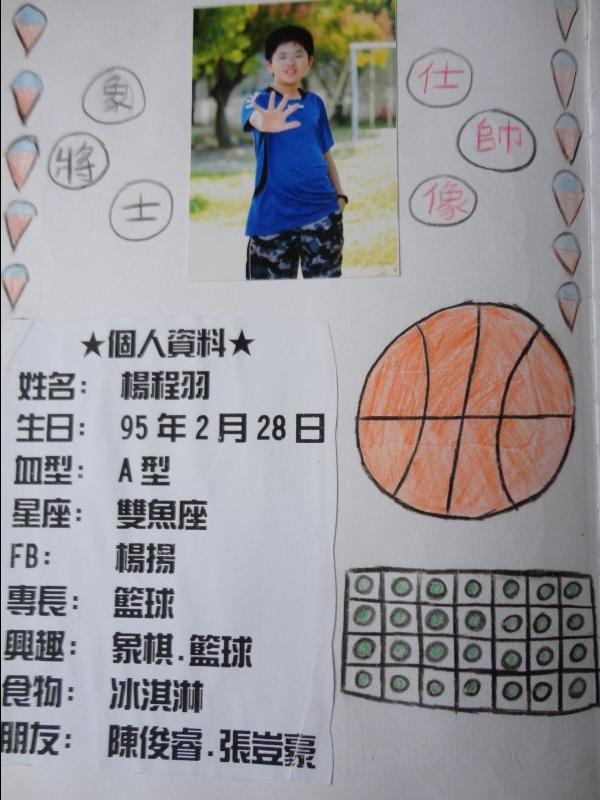 象
將
士
仕
帥
像
★個人資料★
姓名： 楊程羽
生日： 95年2月28日
血型： A型
星座： 雙魚座
FB： 楊揚
專長： 籃球
興趣： 象棋.籃球
食物： 冰淇淋
朋友： 陳俊睿.張豈豪